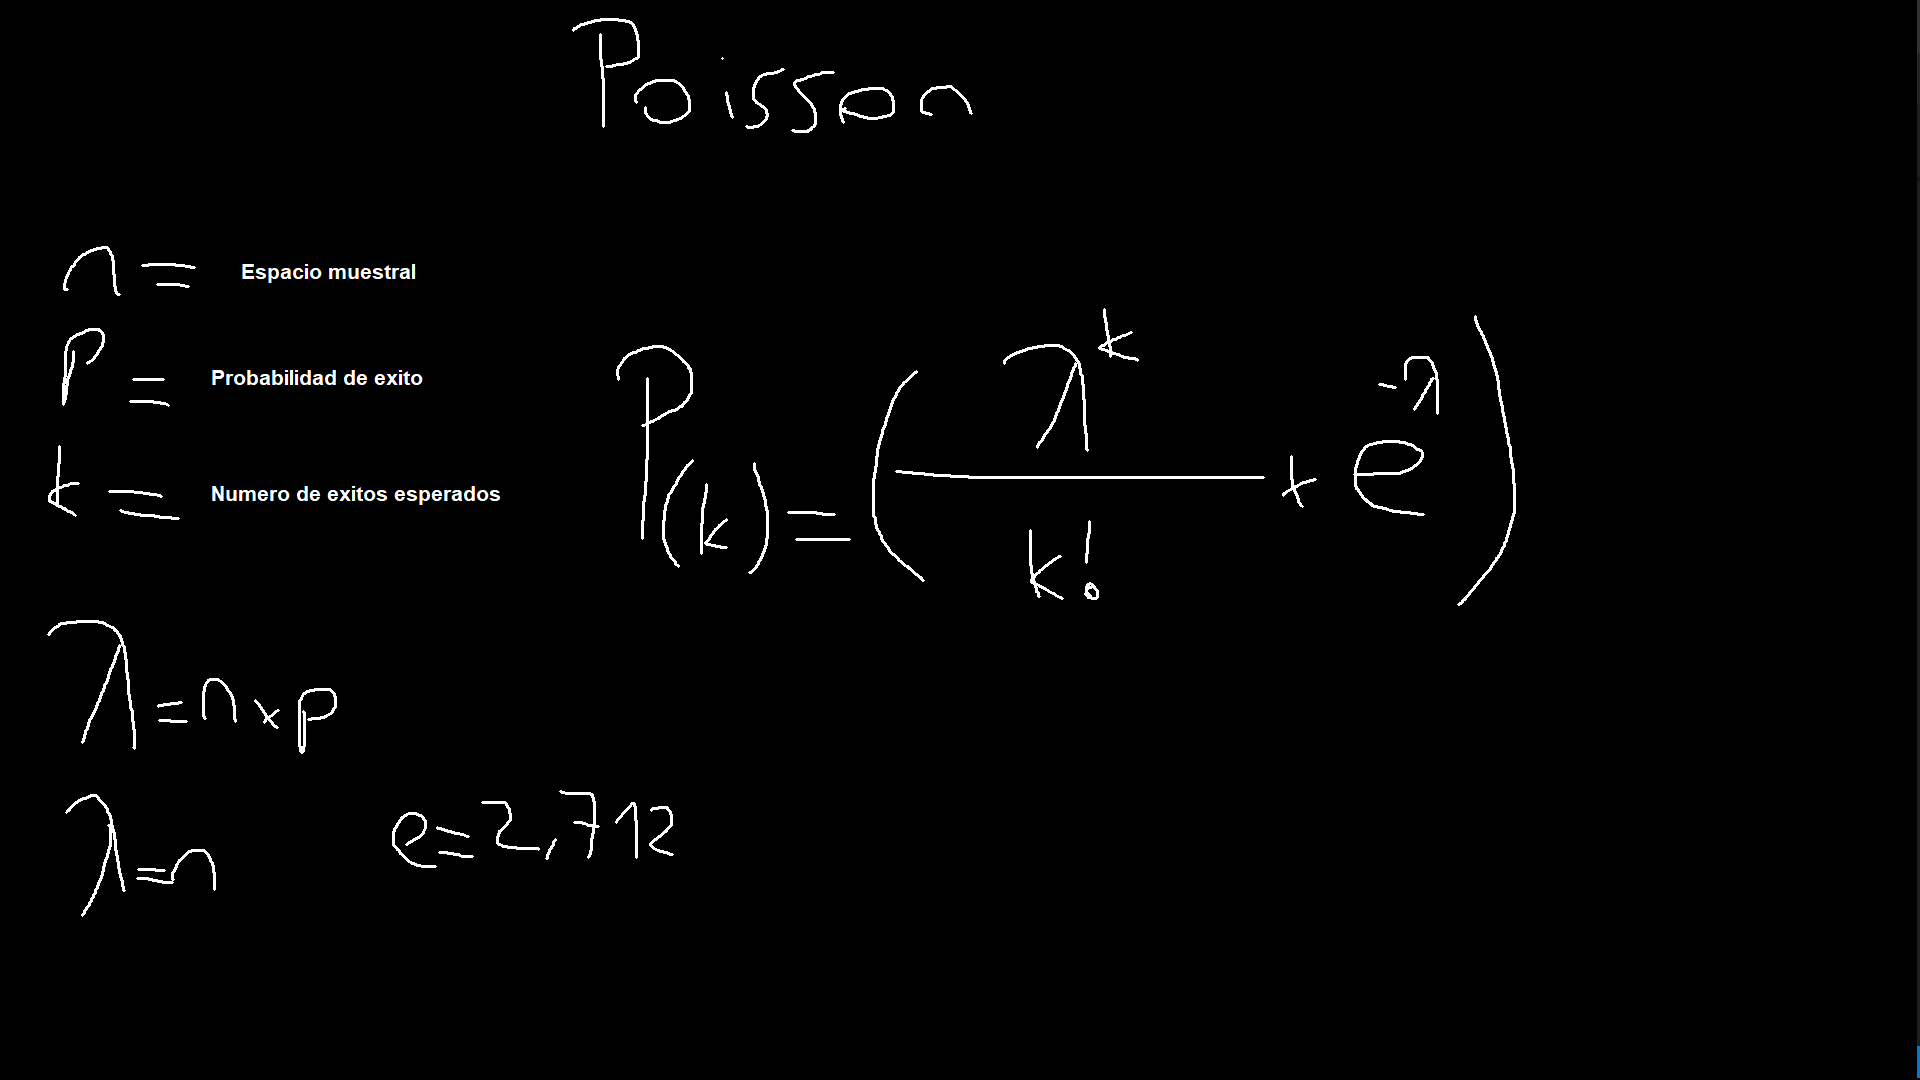 Poisson
n = Espacio muestral
P = Probabilidad de exito
k = Numero de exitos esperados
P(k) = (λ^k / k! + e^-λ)
λ = n x p
λ = n
e = 2,712